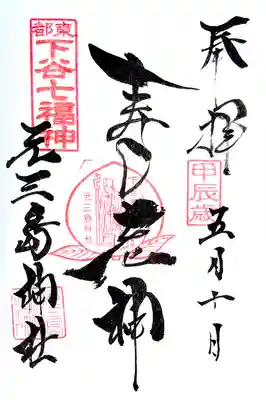 奉拝
甲辰歳
五月十日
寿老神
元三島神社
東都
下谷七福神
元三島神社